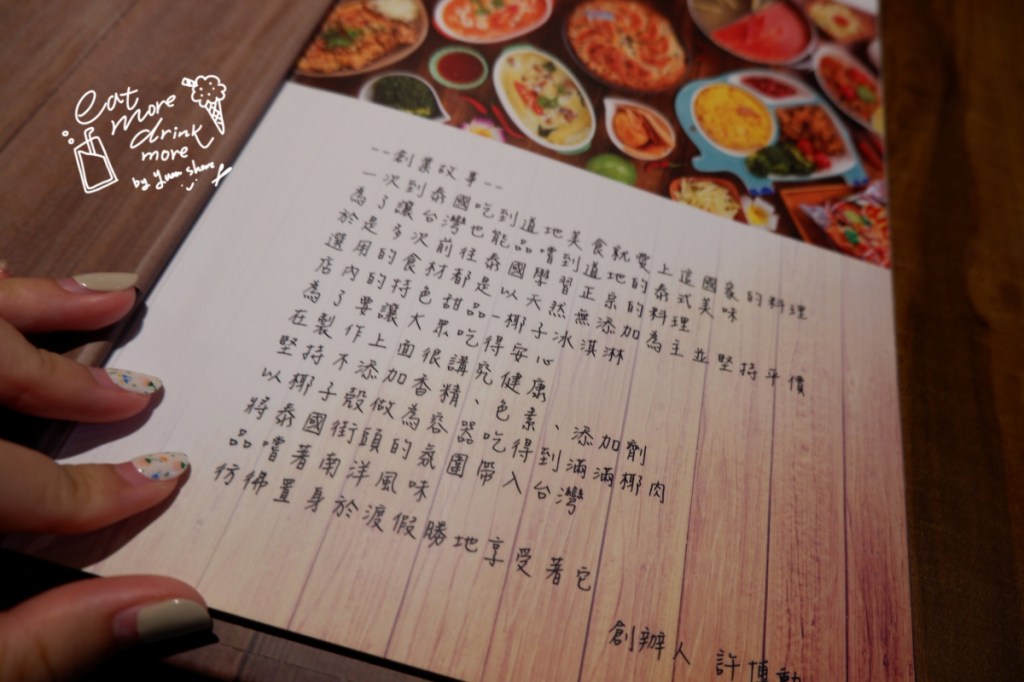 eat
more
drink
more
by yuan share
--創業故事--
一次到泰國吃到道地美食就愛上這國家的料理
為了讓台灣也能品嚐到道地的泰式美味
於是多次前往泰國學習正宗的料理
選用的食材都是以天然無添加為主並堅持平價
店內的特色甜品-椰子冰淇淋
為了要讓大眾吃得安心
在製作上面很講究健康
堅持不添加香精、色素、添加劑
以椰子殼做為容器吃得到滿滿椰肉
將泰國街頭的氛圍帶入台灣
品嚐著南洋風味
彷彿置身於渡假勝地享受著它
創辦人 許博